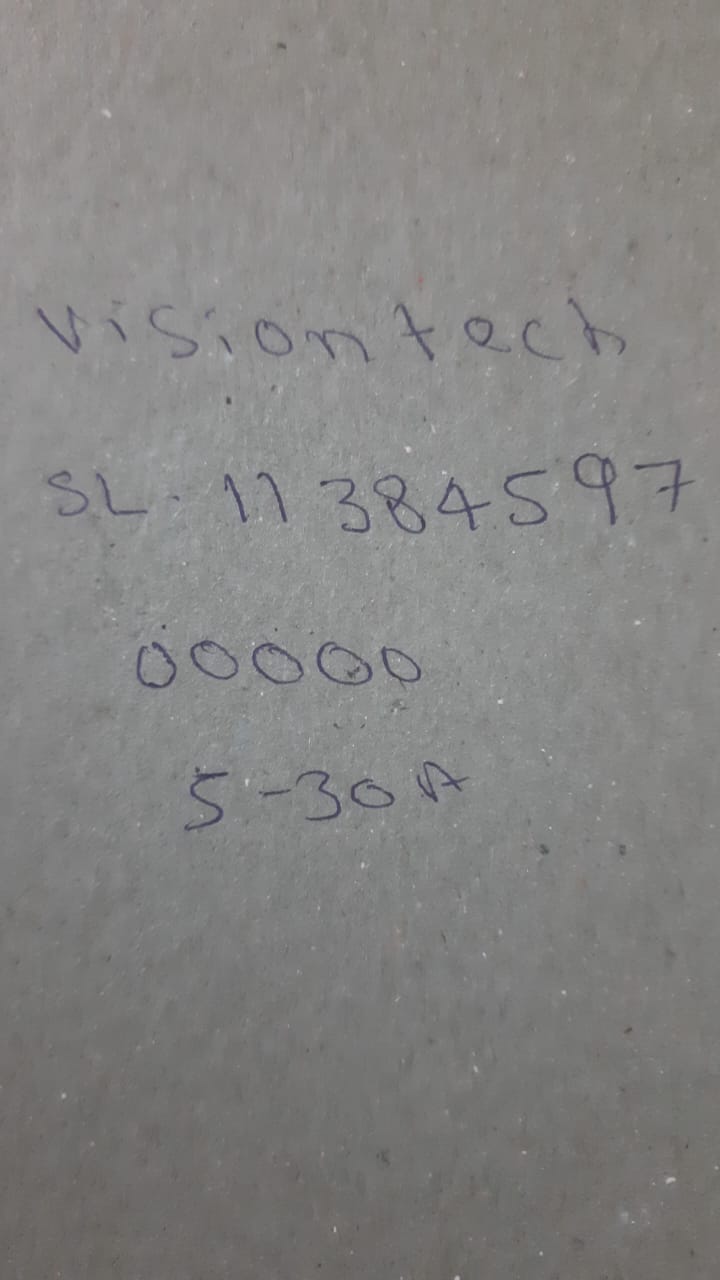 visiontech
SL. 11384597
00000
5-30A